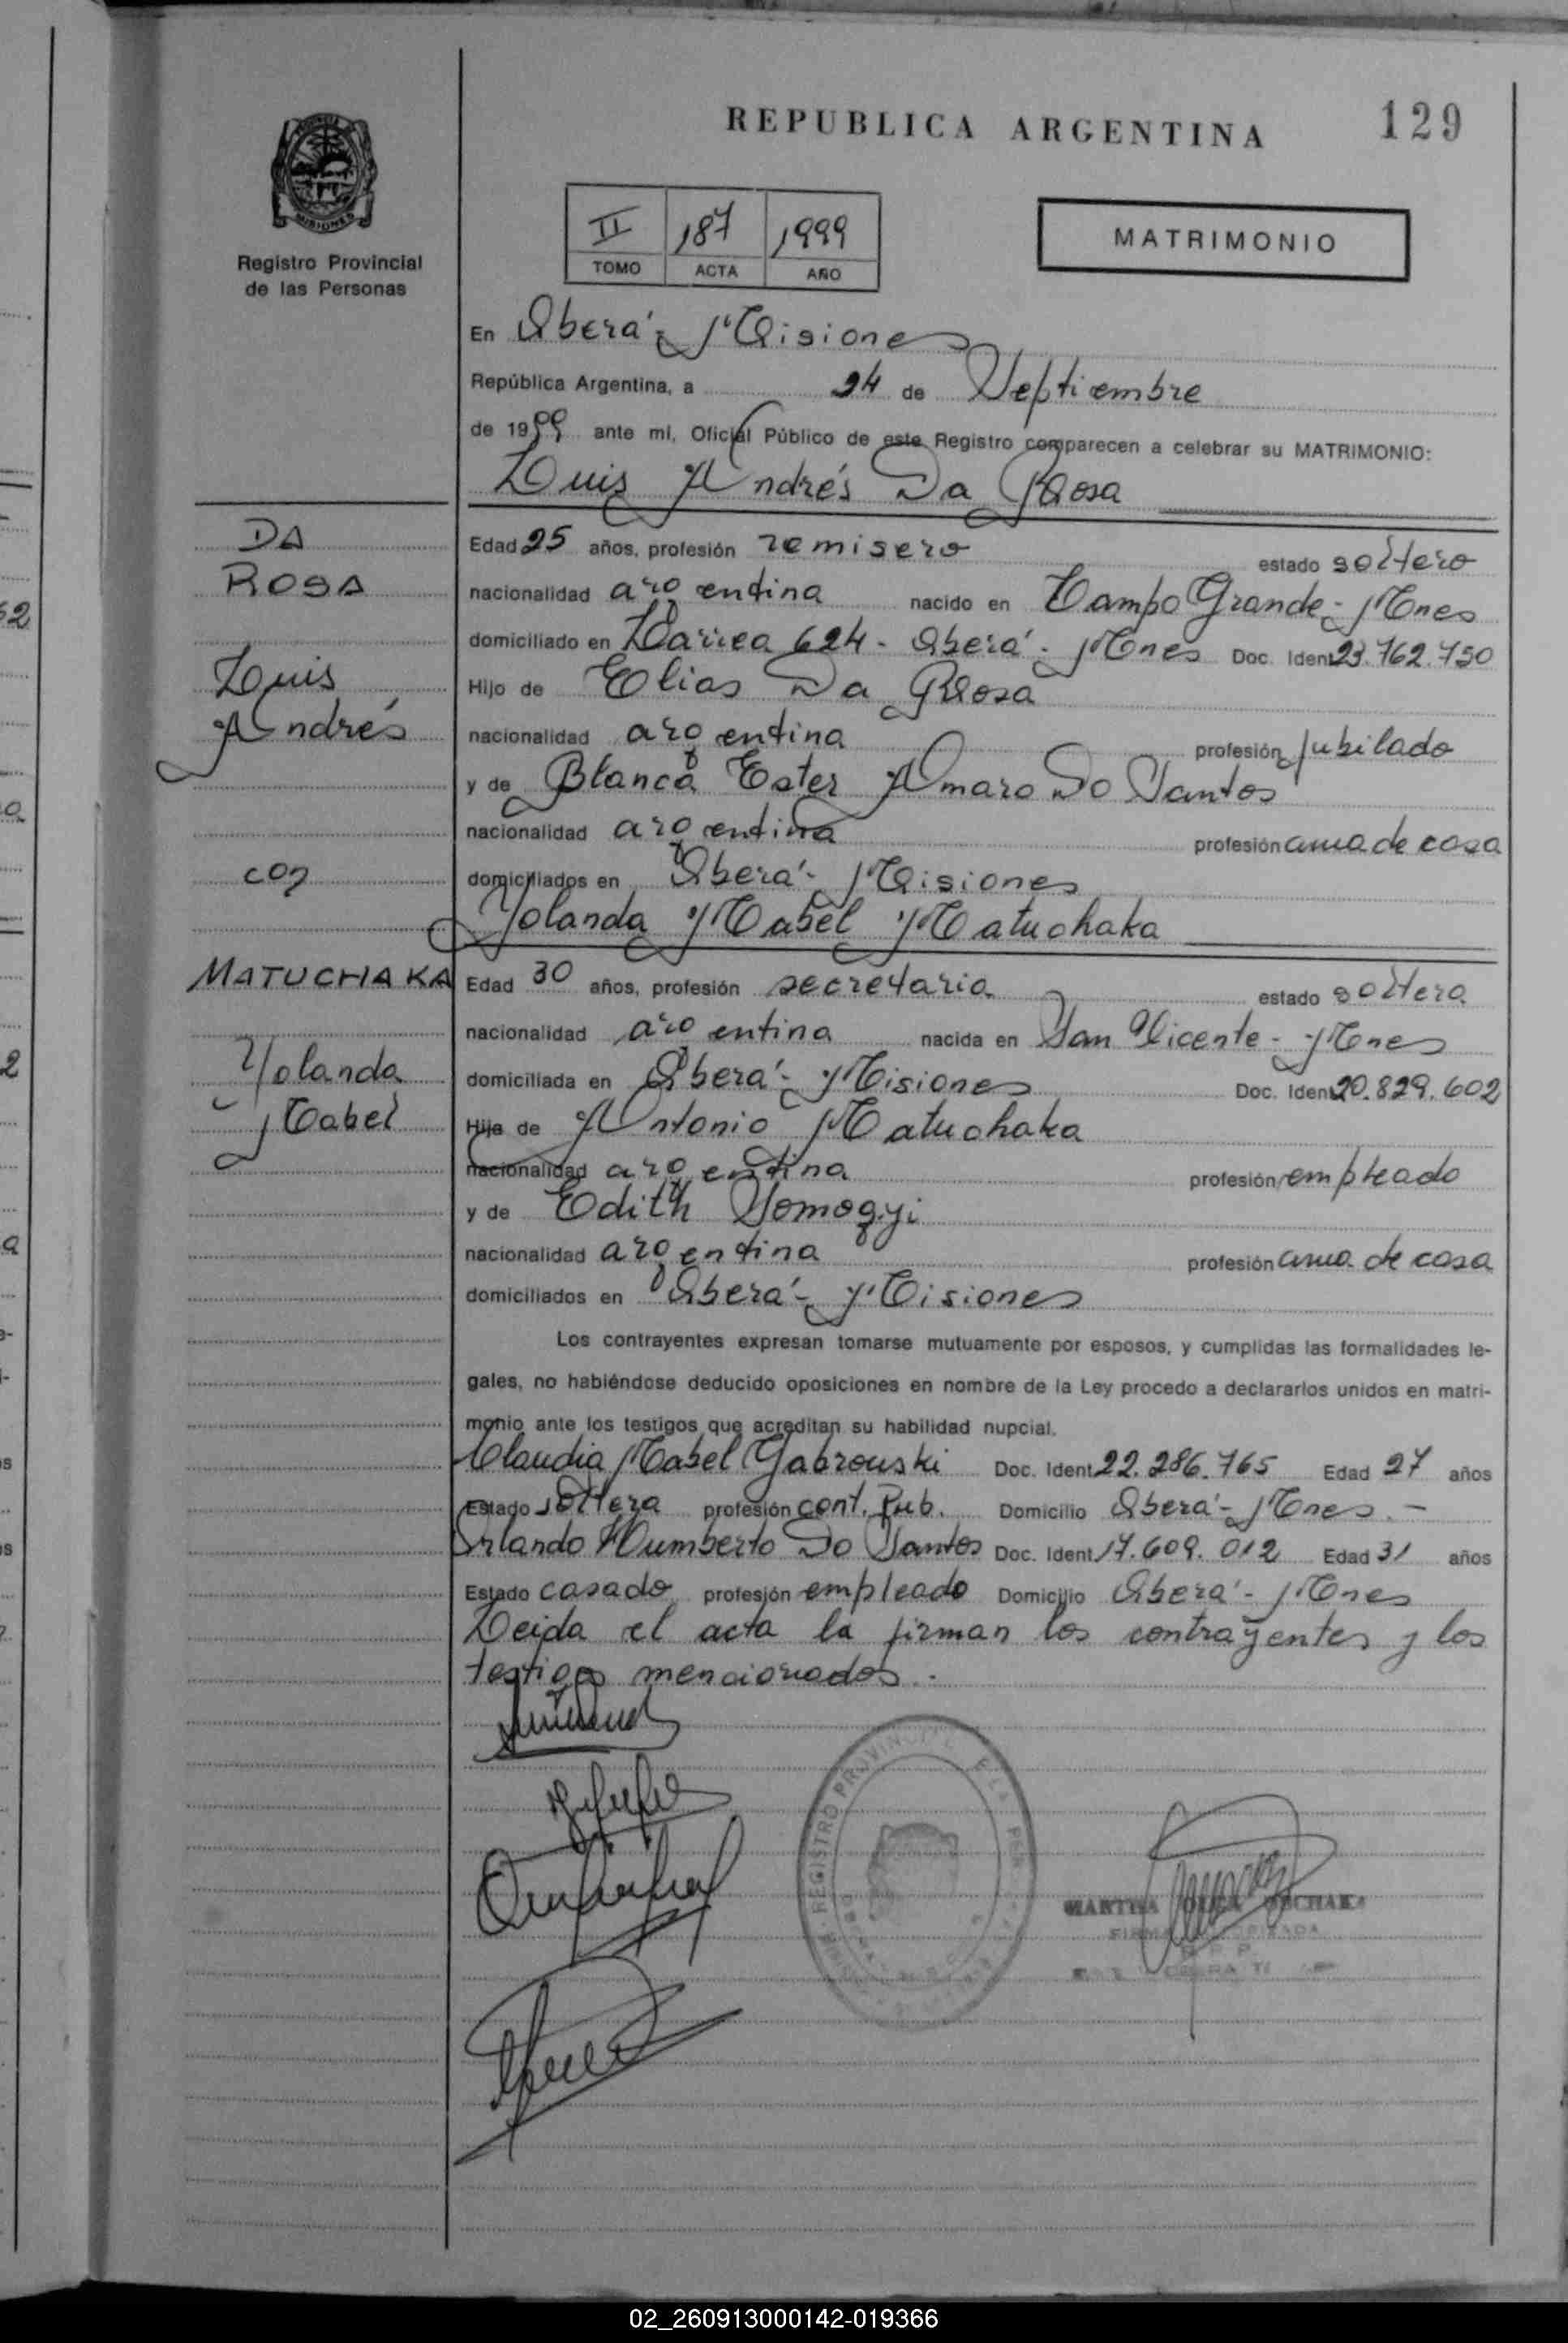 REPUBLICA ARGENTINA 129
MISIONES
Registro Provincial
de las Personas
II 187 1999
TOMO ACTA AÑO
MATRIMONIO
En Oberá - Misiones
República Argentina, a 24 de Septiembre
de 1999 ante mí, Oficial Público de este Registro comparecen a celebrar su MATRIMONIO:
Luis Andrés Da Rosa
DA
ROSA
Luis
Andrés
con
MATUCHAKA
Yolanda
Mabel
Edad 25 años, profesión remisero estado soltero
nacionalidad argentina nacido en Campo Grande - Mnes
domiciliado en Larrea 624 - Oberá - Mnes Doc. Ident 23.762.750
Hijo de Elias Da Rosa
nacionalidad argentina profesión jubilado
y de Blanca Ester Amaro Do Santos
nacionalidad argentina profesión ama de casa
domiciliados en Oberá - Misiones
Yolanda Mabel Matuchaka
Edad 30 años, profesión secretaria estado soltera
nacionalidad argentina nacida en San Vicente - Mnes
domiciliada en Oberá - Misiones Doc. Ident 20.829.602
Hija de Antonio Matuchaka
nacionalidad argentina profesión empleado
y de Edith Somogyi
nacionalidad argentina profesión ama de casa
domiciliados en Oberá - Misiones
Los contrayentes expresan tomarse mutuamente por esposos, y cumplidas las formalidades le-
gales, no habiéndose deducido oposiciones en nombre de la Ley procedo a declararlos unidos en matri-
monio ante los testigos que acreditan su habilidad nupcial.
Claudia Mabel Gabrouski Doc. Ident 22.286.765 Edad 27 años
Estado soltera profesión cont. Pub. Domicilio Oberá - Mnes. -
Orlando Humberto Do Santos Doc. Ident 17.609.012 Edad 31 años
Estado casado profesión empleado Domicilio Oberá - Mnes
Leida el acta la firman los contrayentes y los
testigos mencionados.-
REGISTRO PROVINCIAL
MARTHA
02_260913000142-019366